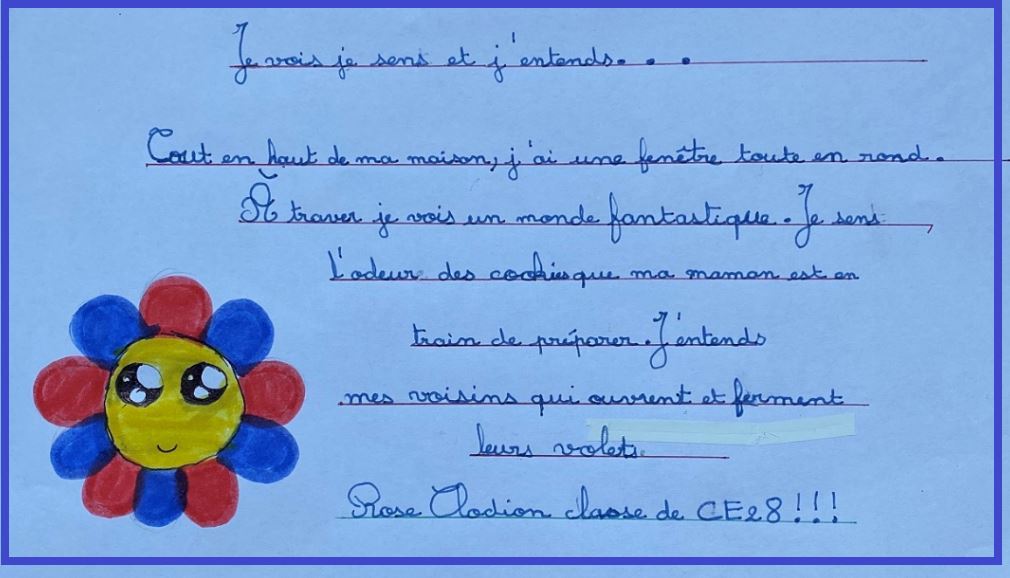 Je vois je sens et j'entends...
Tout en haut de ma maison, j'ai une fenêtre toute en rond.
À traver je vois un monde fantastique. Je sens
l'odeur des cookies que ma maman est en
train de préparer. J'entends
mes voisins qui ouvrent et ferment
leurs volets.
Rose Clodion classe de CE2 8!!!